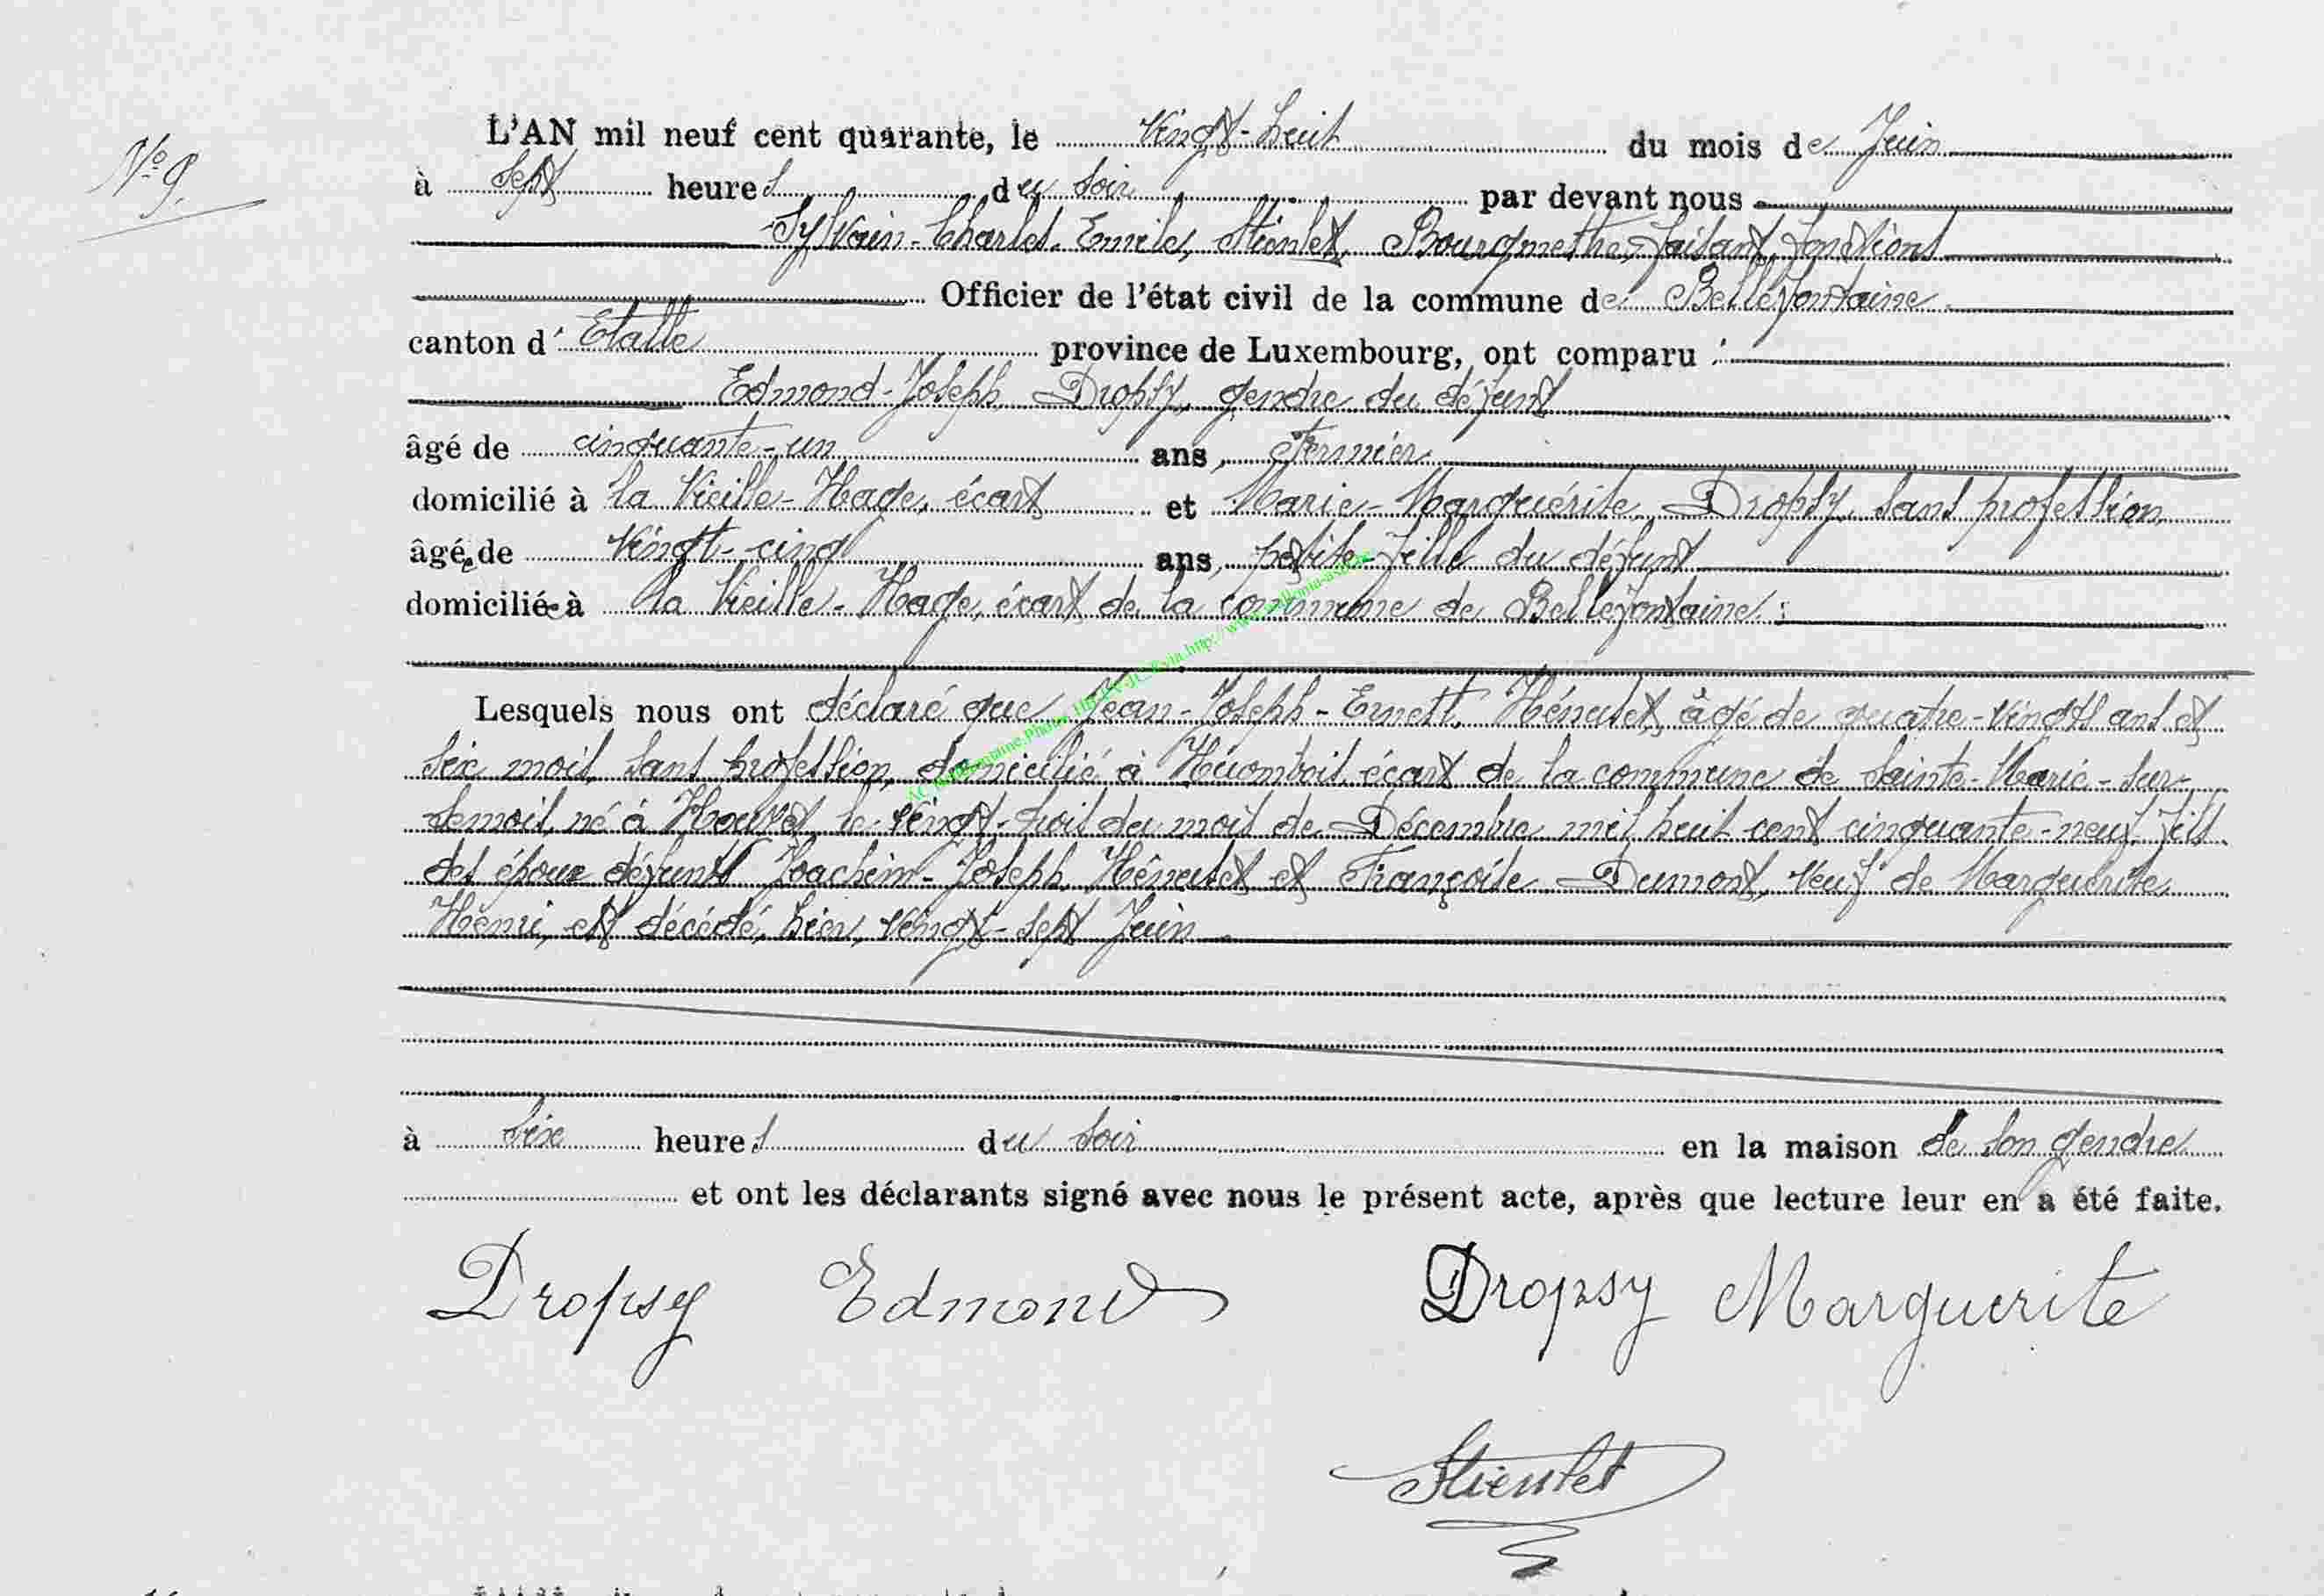 N° 9.
L'AN mil neuf cent quarante, le vingt-huit du mois de Juin
à sept heures du soir par devant nous
Sylvain-Charles-Emile, Stienlet, Bourgmestre, faisant fonctions
Officier de l'état civil de la commune de Bellefontaine
canton d'Etalle province de Luxembourg, ont comparu :
Edmond-Joseph Dropsy, gendre du défunt
âgé de cinquante-un ans, Fermier
domicilié à la Vieille-Hage, écart et Marie-Marguérite, Dropsy, sans profession,
âgée de vingt-cinq ans, petite-fille du défunt
domiciliée à la Vieille-Hage, écart de la commune de Bellefontaine :
Lesquels nous ont déclaré que Jean-Joseph-Ernest, Hénulet, âgé de quatre-vingts ans et
six mois, sans profession, domicilié à écart de la commune de Sainte-Marie-sur-
Semois, né à le vingt-trois du mois de Décembre mil huit cent cinquante-neuf, fils
des époux défunts Joachim-Joseph, Hénulet et Françoise Dumont, veuf de Marguerite
Henri, est décédé, hier, vingt-sept Juin
à six heures du soir en la maison de son gendre
et ont les déclarants signé avec nous le présent acte, après que lecture leur en a été faite.
Dropsy Edmond Dropsy Marguerite
Stienlet